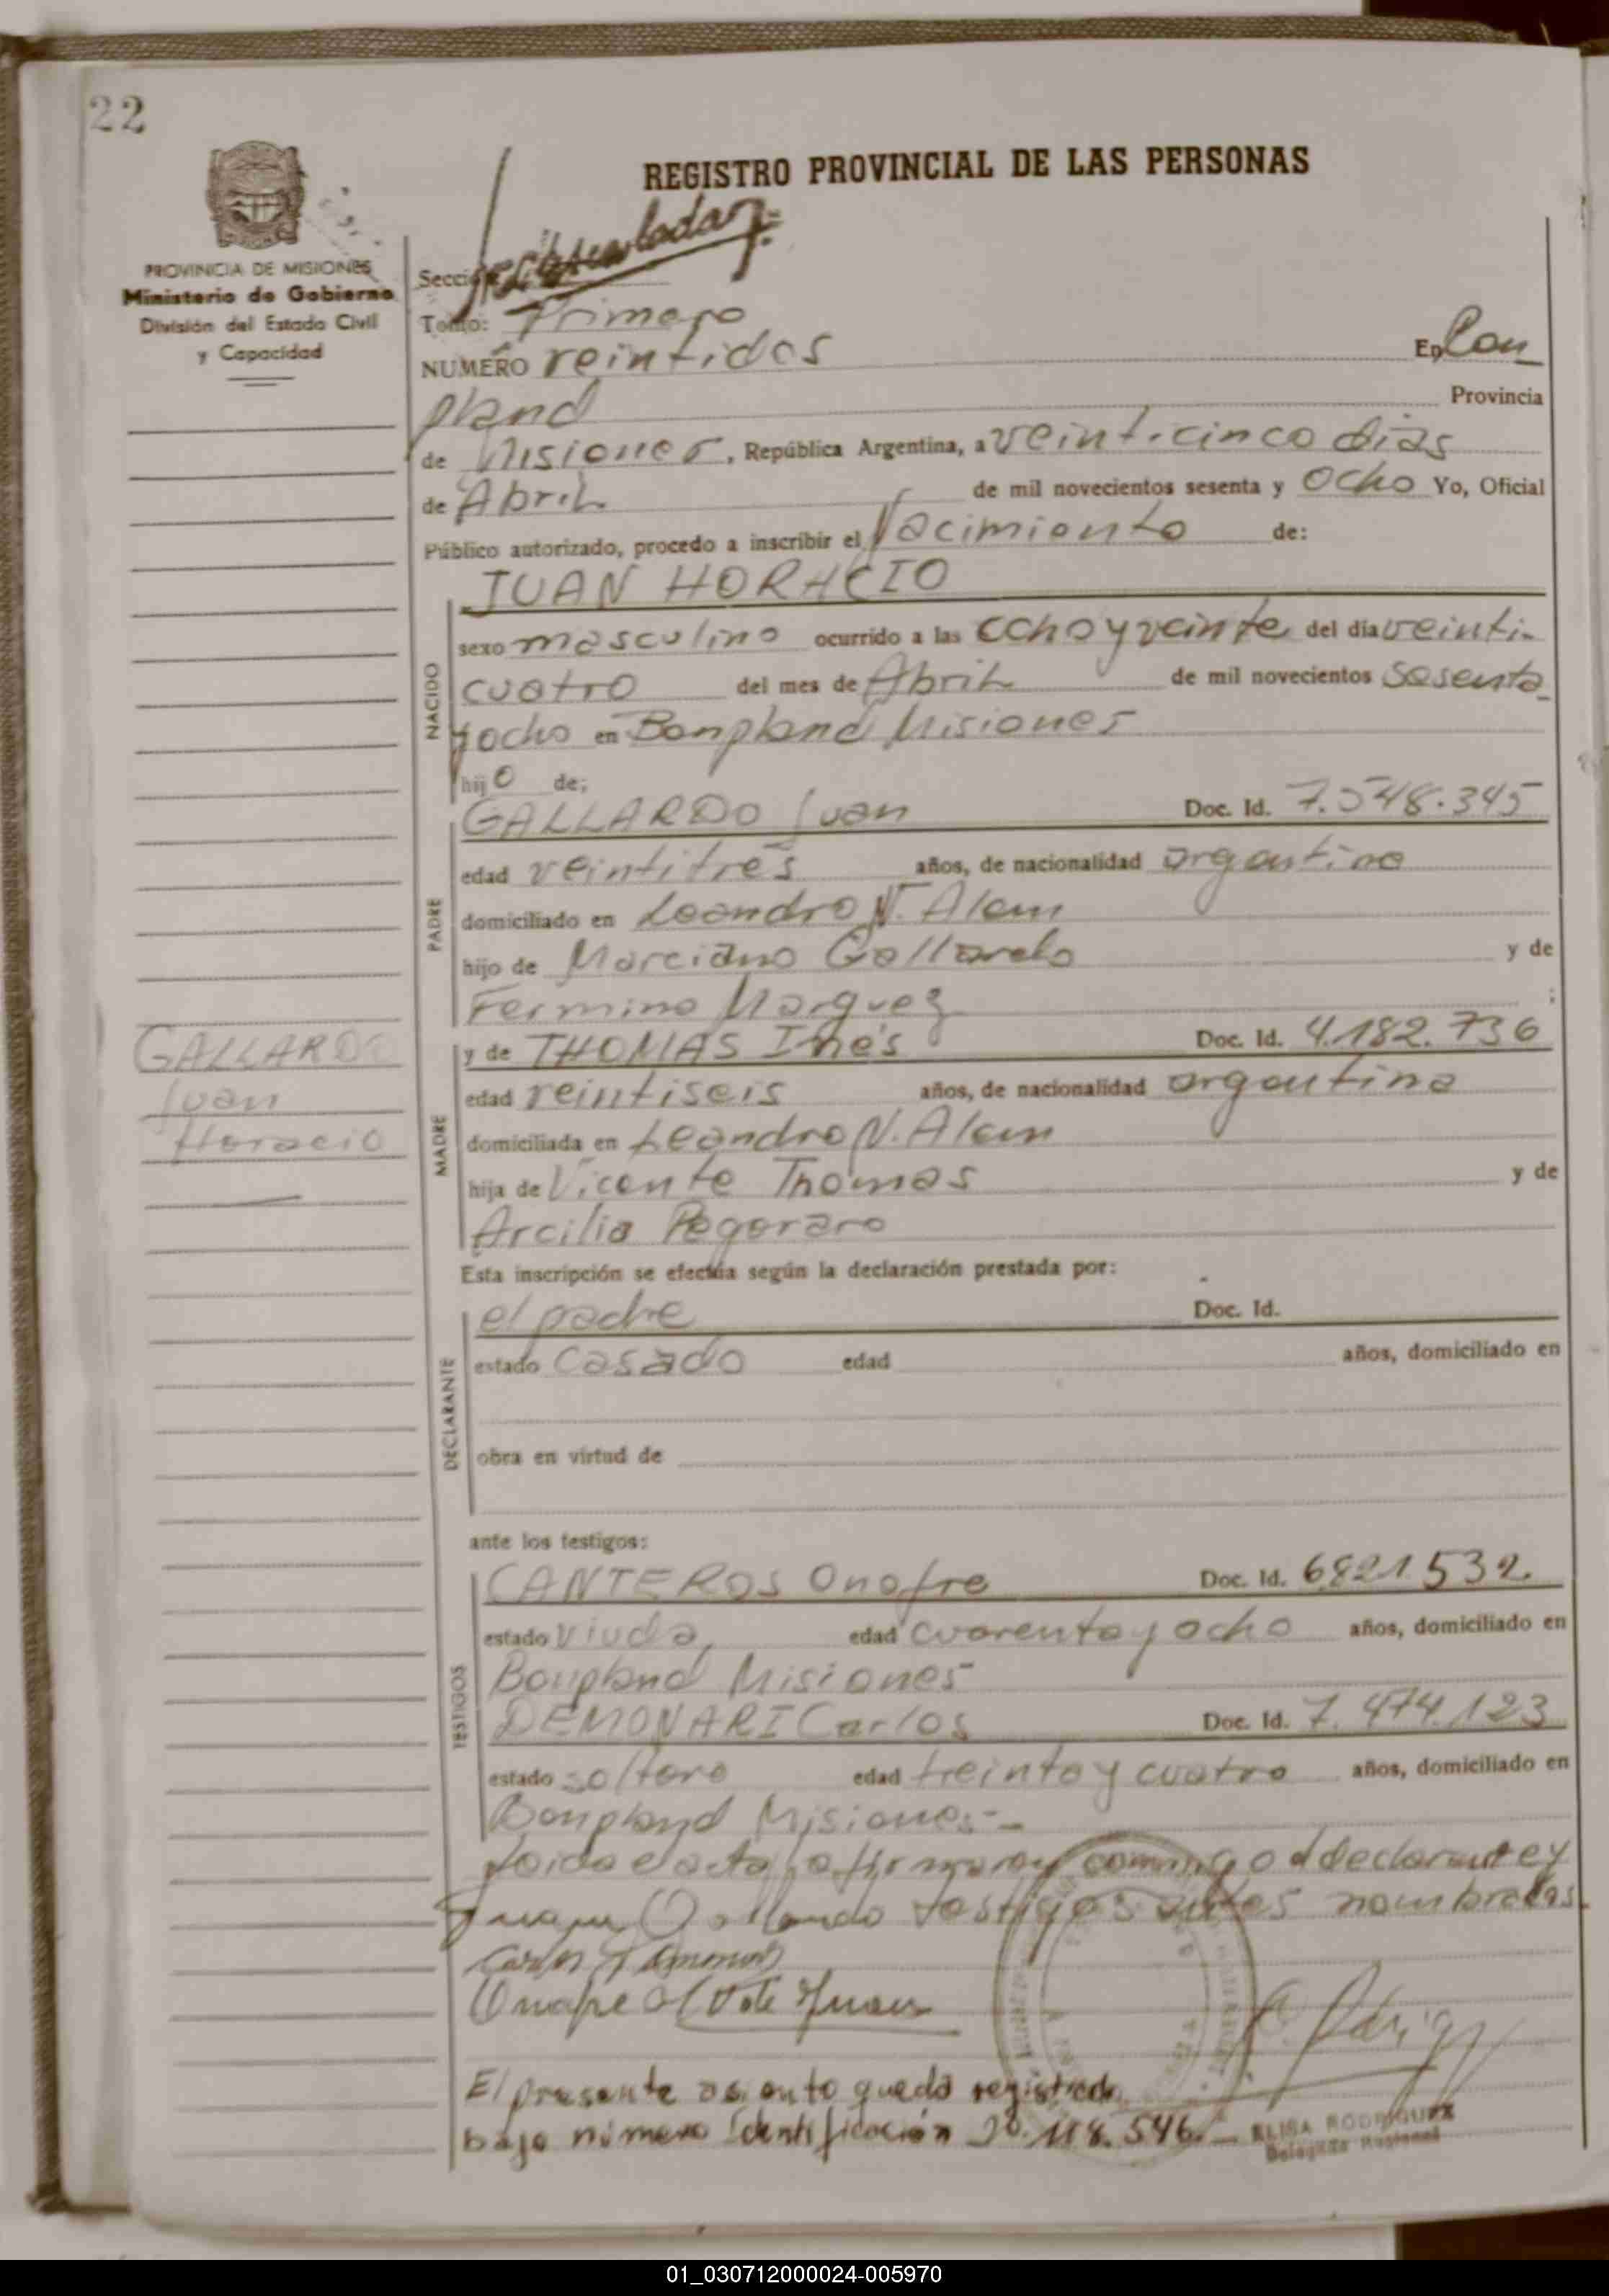 22
REGISTRO PROVINCIAL DE LAS PERSONAS
PROVINCIA DE MISIONES
Ministerio de Gobierno
División del Estado Civil
y Capacidad
Tomo: Primero
NUMERO veintidos En Bon
pland Provincia
de Misiones, República Argentina, a veinticinco dias
de Abril de mil novecientos sesenta y ocho Yo, Oficial
Público autorizado, procedo a inscribir el Nacimiento de:
NACIDO
JUAN HORACIO
sexo masculino ocurrido a las ocho y veinte del día veinti-
cuatro del mes de Abril de mil novecientos sesenta
y ocho en Bonpland Misiones
hijo de;
PADRE
GALLARDO Juan Doc. Id. 7.548.345
edad veintitres años, de nacionalidad argentino
domiciliado en Leandro N. Alem
hijo de Marciano Gallardo y de
Fermina Marquez ;
GALLARDO
Juan
Horacio
MADRE
y de THOMAS Inés Doc. Id. 4.182.736
edad veintiseis años, de nacionalidad argentina
domiciliada en Leandro N. Alem
hija de Vicente Thomas y de
Arcilia Pegoraro
Esta inscripción se efectúa según la declaración prestada por:
DECLARANTE
el padre Doc. Id.
estado casado edad años, domiciliado en
obra en virtud de
ante los testigos:
TESTIGOS
CANTEROS Onofre Doc. Id. 6821532.
estado viuda, edad cuarenta y ocho años, domiciliado en
Bonpland Misiones
DEMONARI Carlos Doc. Id. 7.474.123
estado soltero edad treinta y cuatro años, domiciliado en
Bonpland Misiones-
Leida el acta, la firmaron conmigo el declarante y
testigos antes nombrados.
El presente asiento queda registrado
bajo número Identificación 20.118.546.-
ELISA RODRIGUEZ
Delegada Regional
01_030712000024-005970